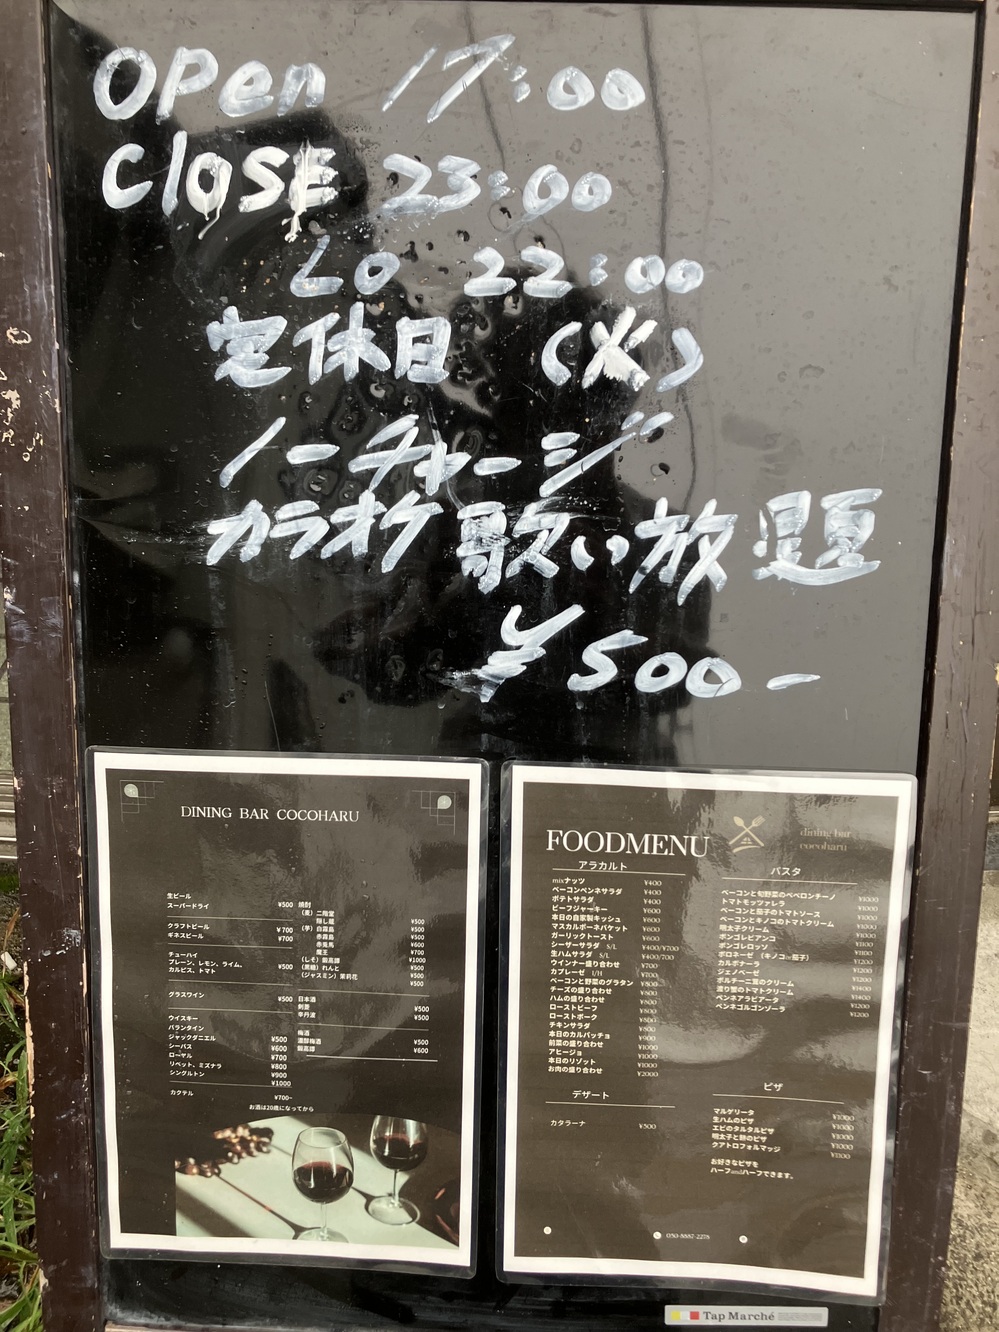 Open 17:00
Close 23:00
LO 22:00
定休日 (火)
ノーチャージ
カラオケ歌い放題
¥500-
DINING BAR COCOHARU
生ビール
スーパードライ ¥500
クラフトビール ¥700
ギネスビール ¥700
チューハイ
プレーン、レモン、ライム、
カルピス、トマト ¥500
グラスワイン ¥500
ウイスキー
バランタイン ¥500
ジャックダニエル ¥600
シーバス ¥700
ローヤル ¥800
リベット、ミズナラ ¥900
シングルトン ¥1000
カクテル ¥700~
お酒は20歳になってから
焼酎
(麦) 二階堂 ¥500
隠し蔵 ¥500
(芋) 白霧島 ¥500
赤霧島 ¥600
赤兎馬 ¥700
魔王 ¥1000
(しそ) 鍛高譚 ¥500
(黒糖) れんと ¥500
(ジャスミン) 茉莉花 ¥500
日本酒
剣菱 ¥500
辛丹波 ¥500
梅酒
濃醇梅酒 ¥500
鍛高譚 ¥600
FOODMENU
dining bar
cocoharu
アラカルト
mixナッツ ¥400
ベーコンペンネサラダ ¥400
ポテトサラダ ¥400
ビーフジャーキー ¥600
本日の自家製キッシュ ¥600
マスカルポーネバケット ¥600
ガーリックトースト ¥600
シーザーサラダ S/L ¥400/¥700
生ハムサラダ S/L ¥400/700
ウインナー盛り合わせ ¥700
カプレーゼ 1/H ¥700
ベーコンと野菜のグラタン ¥800
チーズの盛り合わせ ¥800
ハムの盛り合わせ ¥800
ローストビーフ ¥800
ローストポーク ¥800
チキンサラダ ¥800
本日のカルパッチョ ¥900
前菜の盛り合わせ ¥1000
アヒージョ ¥1000
本日のリゾット ¥1000
お肉の盛り合わせ ¥2000
デザート
カタラーナ ¥500
パスタ
ベーコンと旬野菜のペペロンチーノ
トマトモッツァレラ ¥1000
ベーコンと茄子のトマトソース ¥1000
ベーコンとキノコのトマトクリーム ¥1000
明太子クリーム ¥1000
ボンゴレビアンコ ¥1100
ボンゴレロッソ ¥1100
ボロネーゼ (キノコor茄子) ¥1200
カルボナーラ ¥1200
ジェノベーゼ ¥1200
ポルチーニ茸のクリーム ¥1400
渡り蟹のトマトクリーム ¥1400
ペンネアラビアータ ¥1200
ペンネゴルゴンゾーラ ¥1200
ピザ
マルゲリータ ¥1000
生ハムのピザ ¥1000
エビのタルタルピザ ¥1000
明太子と餅のピザ ¥1000
クアトロフォルマッジ ¥1500
お好きなピザを
ハーフandハーフできます。
050-8887-2278
Tap Marché